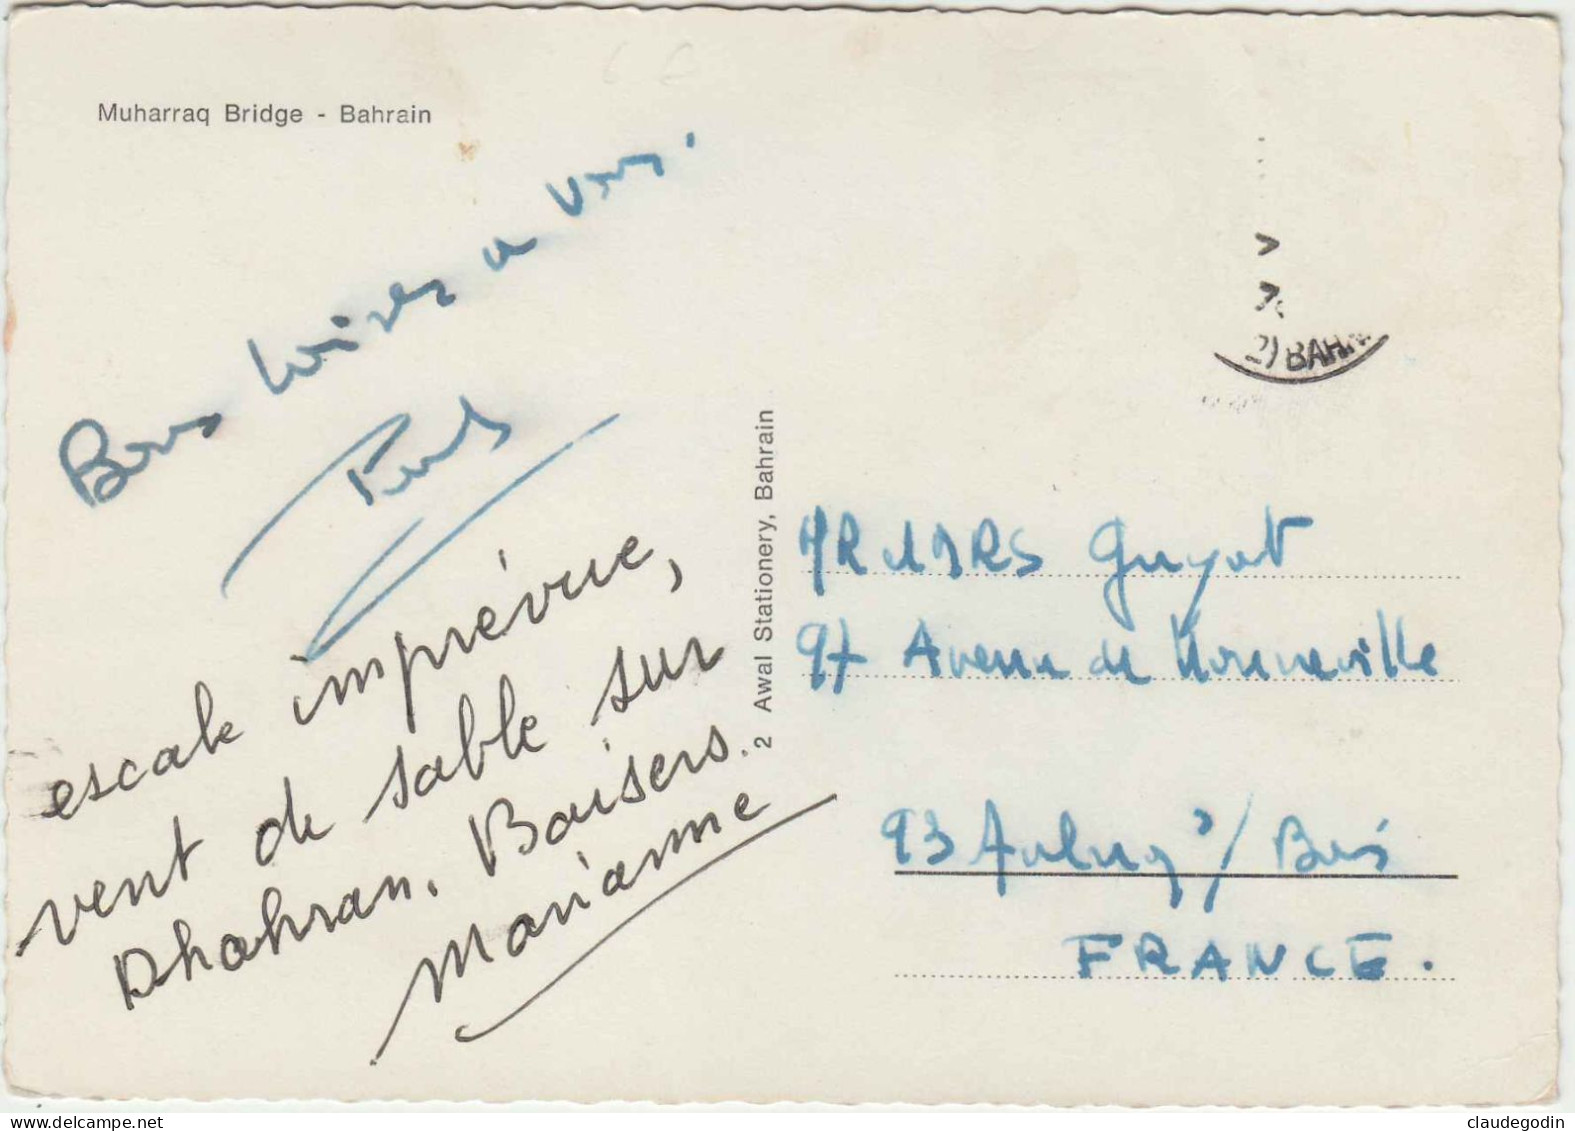 Muharraq Bridge - Bahrain
Bons baisers à vous.
Paul
escale imprévue,
vent de sable sur
Dhahran. Baisers.
Marianne
2 Awal Stationery, Bahrain
2) BAH
MR MRS Guyot
97 Avenue de Nonneville
93 Aulnay s/ Bois
FRANCE.
claudegodin
delcampe.net